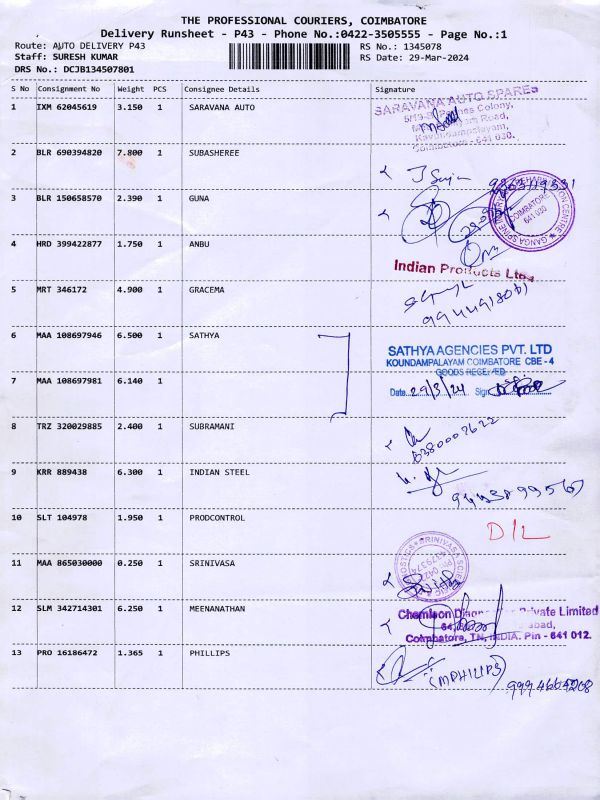 THE PROFESSIONAL COURIERS, COIMBATORE
Delivery Runsheet - P43 - Phone No.:0422-3505555 - Page No.:1
Route: AUTO DELIVERY P43 RS No.: 1345078
Staff: SURESH KUMAR RS Date: 29-Mar-2024
DRS No.: DCJB134507801
S No Consignment No Weight PCS Consignee Details Signature
1 IXM 62045619 3.150 1 SARAVANA AUTO
SARAVANA AUTO SPARES
Colony,
Road,
Kavundampalayam,
Coimbatore - 641 030.
2 BLR 690394820 7.800 1 SUBASHEREE
3 BLR 150658570 2.390 1 GUNA
COIMBATORE
641 030
4 HRD 399422877 1.750 1 ANBU
Indian Products Ltd.,
5 MRT 346172 4.900 1 GRACEMA
9944491801
6 MAA 108697946 6.500 1 SATHYA
SATHYA AGENCIES PVT. LTD
KOUNDAMPALAYAM COIMBATORE CBE - 4
GOODS RECEIVED
7 MAA 108697981 6.140 1
Date 29/3/24 Sign
8 TRZ 320029885 2.400 1 SUBRAMANI
9 KRR 889438 6.300 1 INDIAN STEEL
10 SLT 104978 1.950 1 PRODCONTROL
D/L
11 MAA 865030000 0.250 1 SRINIVASA
12 SLM 342714301 6.250 1 MEENANATHAN
Private Limited
Coimbatore, TN, INDIA. Pin - 641 012.
13 PRO 16186472 1.365 1 PHILLIPS
(MPHILIPS)